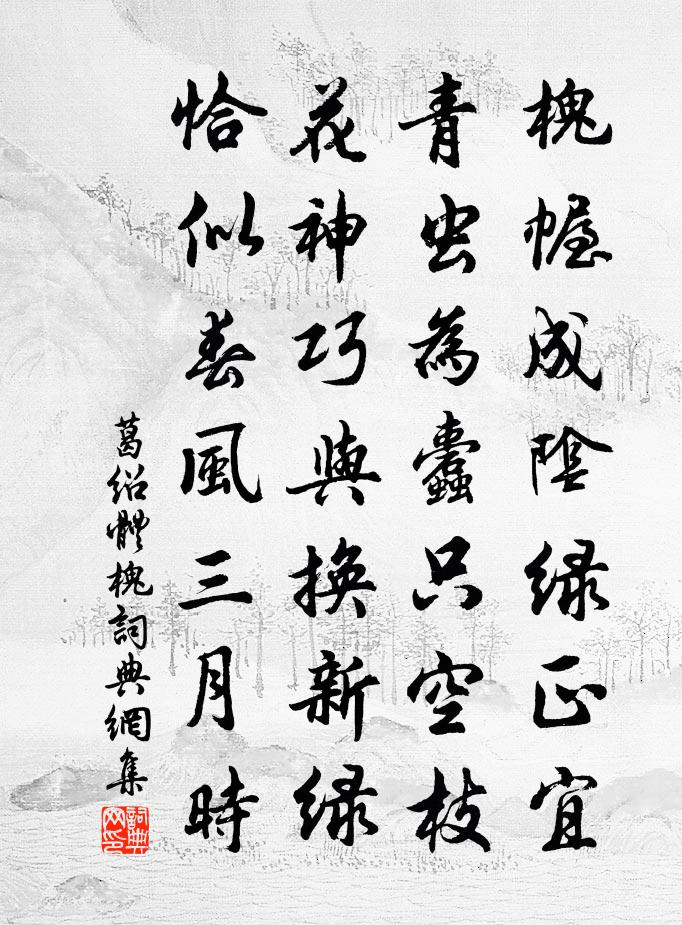 槐幄成陰綠正宜
青虫為蠹只空枝
花神巧與換新綠
恰似春風三月時
葛绍體槐詞典網集
詞典网印